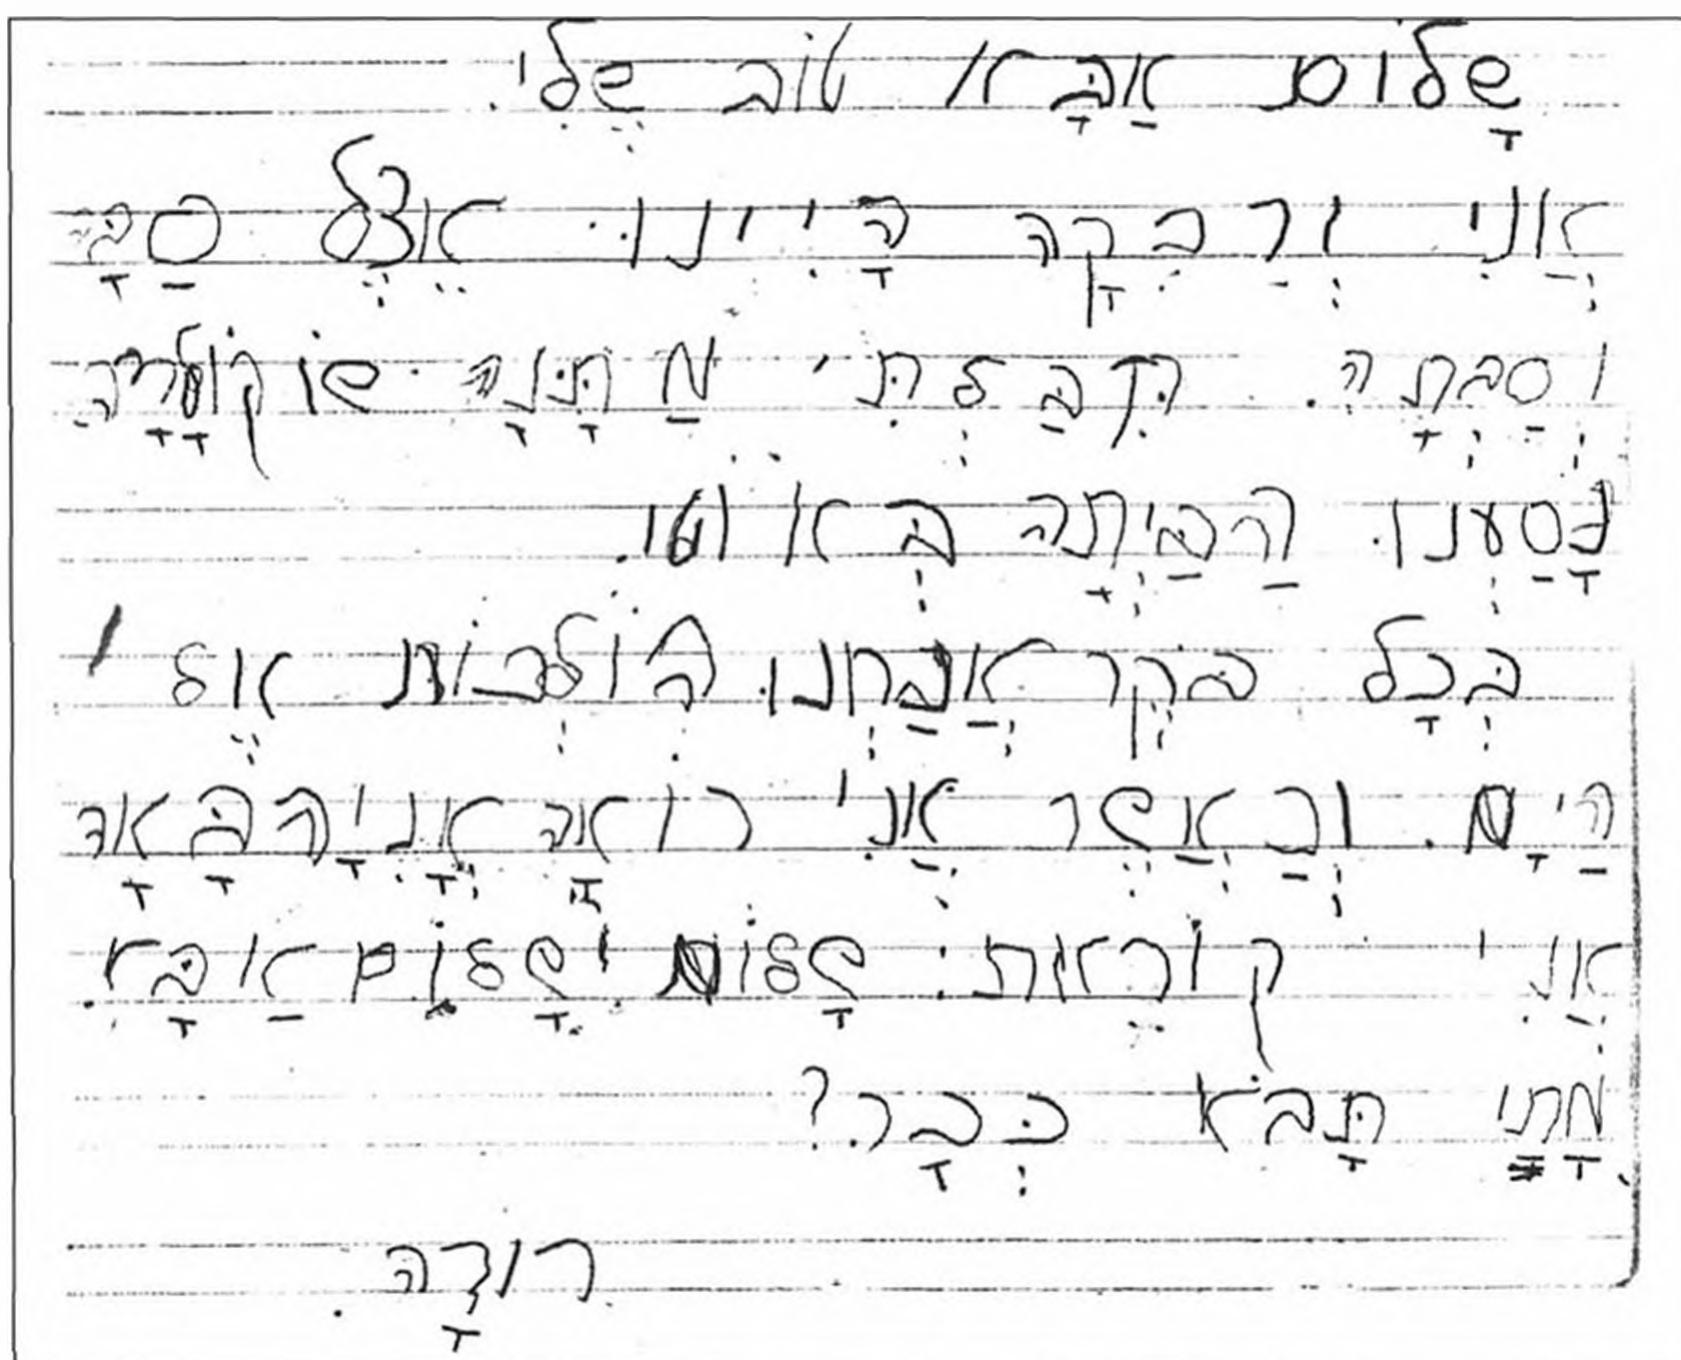 שָׁלוֹם אַבָּא טוֹב שֶׁלִּי.
אֲנִי וְרִבְקָה הָיִינוּ אֵצֶל סַבָּא
וְסַבְתָה. קִבַּלְתִּי מַתָּנָה שׁוֹקוֹלָדָה
נָסַעְנוּ הַבַּיְתָה בְּאוֹטוֹ.
בְּכָל בֹּקֶר אֲנַחְנוּ הוֹלְכוֹת אֶל
הַיָם. וְכַאֲשֶׁר אֲנִי רוֹאָה אֳנִיָה בָּאָה
אֲנִי קוֹרֵאת: שָׁלוֹם שָׁלוֹם אַבָּא.
מָתַי תָּבֹא כְּבָר?
רוּדָה.